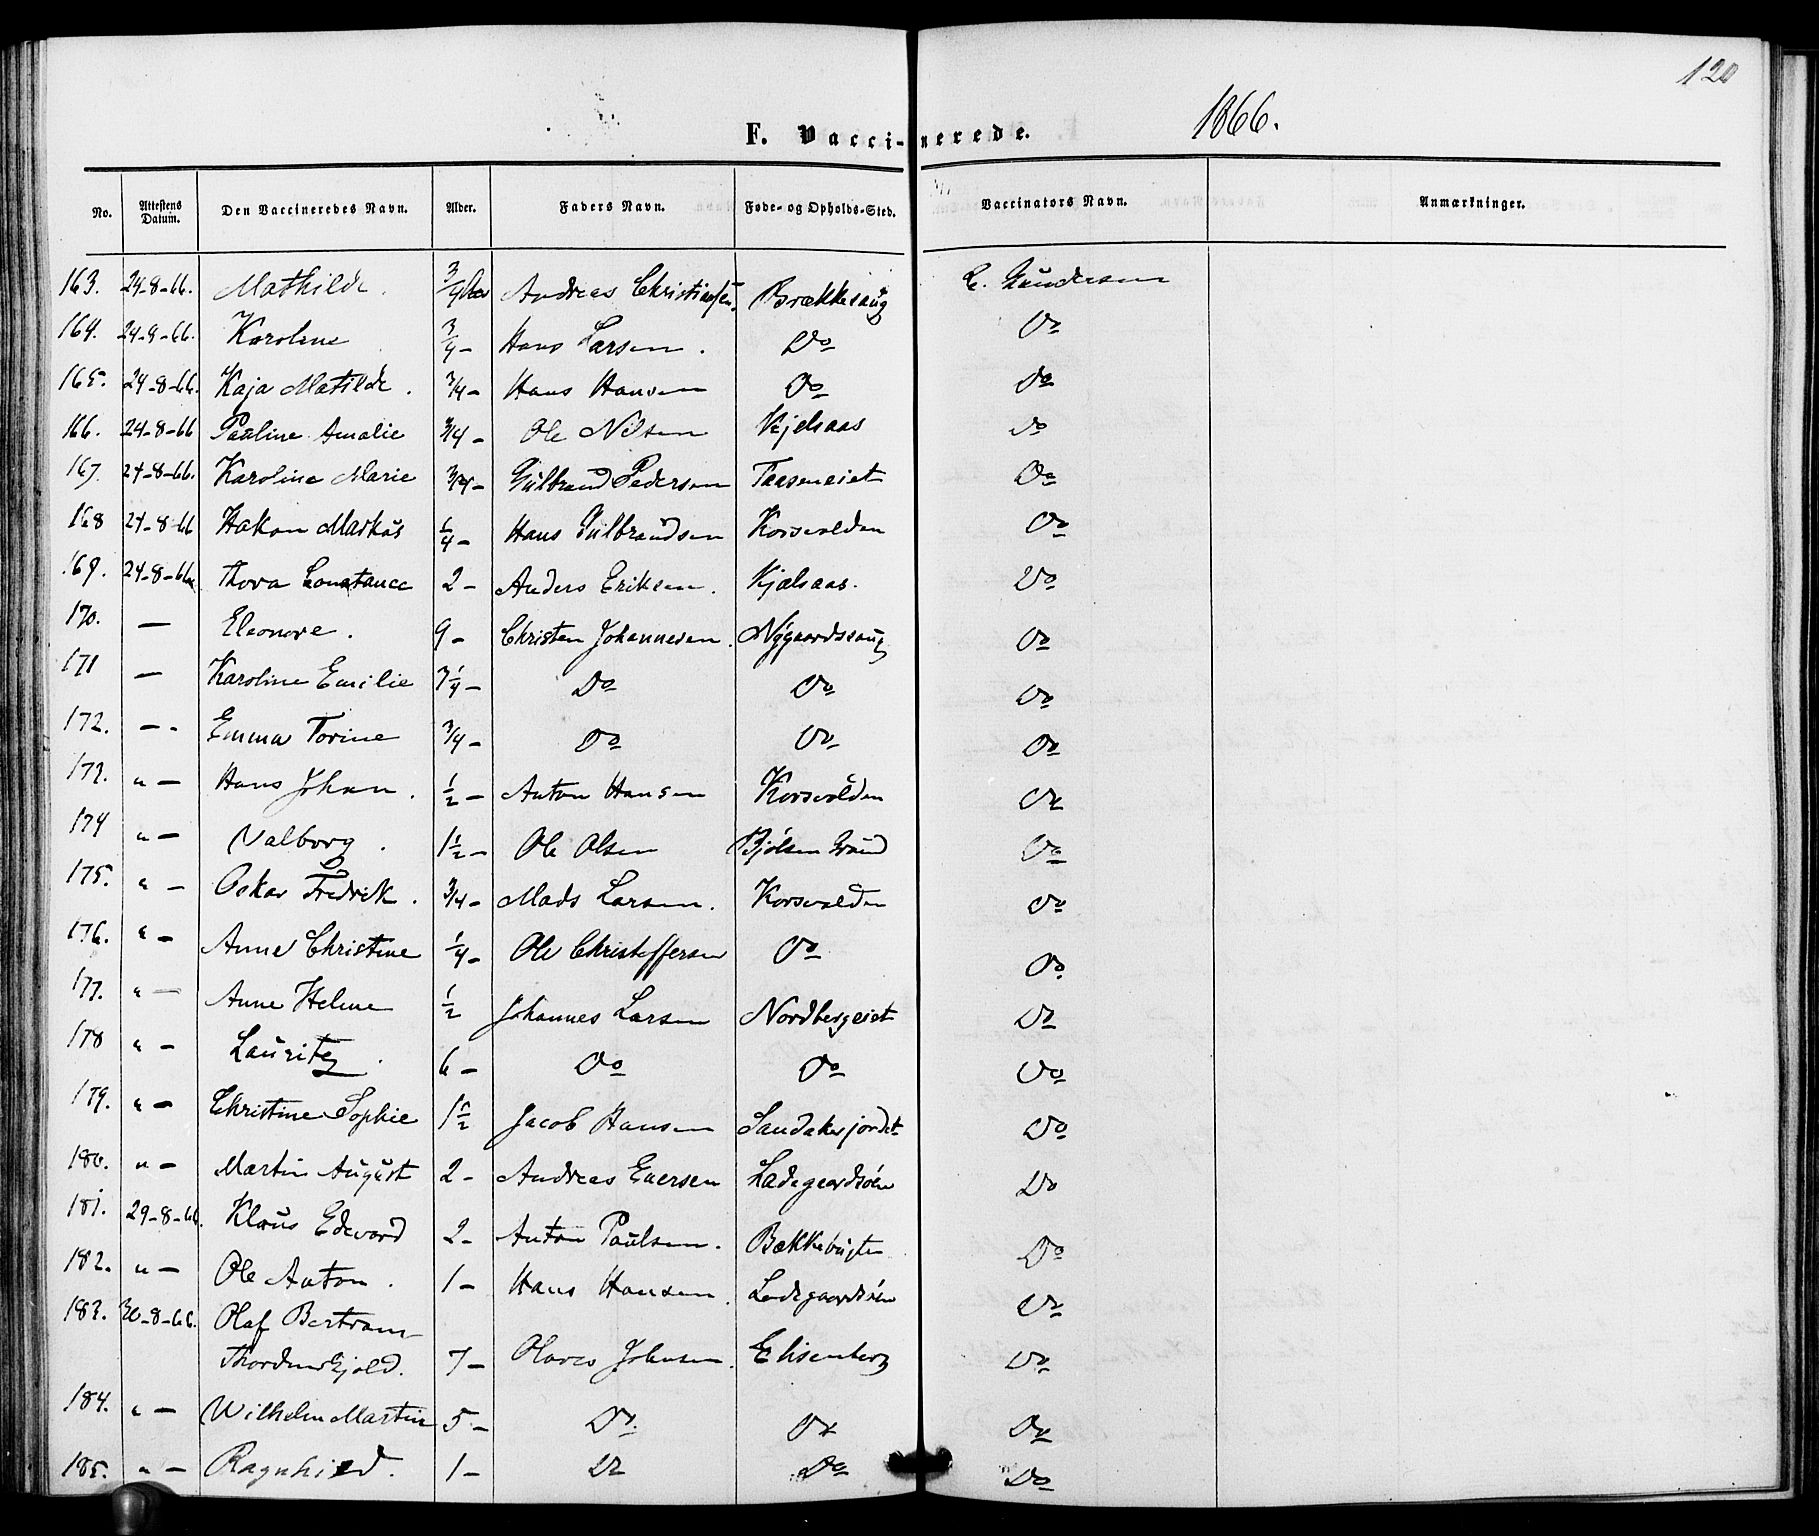 120
F. Vaccinerede. 1866.
No. Attestens Datum. Den Vaccineredes Navn. Alder. Faders Navn. Føde- og Opholds-Sted. Vaccinators Navn. Anmærkninger.
163. 24-8-66. Mathilde. 3/4 Andreas Christiansen. Brækkesaug L. Gundersen
164. 24-9-66. Karoline 3/4 - Hans Larsen. Do Do
165. 24-8-66. Kaja Matilde. 3/4 - Hans Hansen Do Do
166. 24-8-66 Pauline Amalie 3/4 - Ole Nilsen Kjelsaas Do
167. 24-8-66. Karoline Marie 3/4 - Gulbrand Pedersen Taaseneiet Do
168 24-8-66 Hakon Markus 6/4 - Hans Gulbrandsen Korsvolden Do
169. 24-8-66 Thora Constance 2 - Anders Eriksen. Kjælsaas. Do
170. — Eleonore. 9 - Christen Johannesen. Nygaardssaug Do
171 — Karoline Emilie 3 1/4 - Do Do Do
172. - - Emma Torine 3/4 - Do Do Do
173. " — Hans Johan. 1/2 - Anton Hansen Korsvolden Do
174 " — Valborg. 1 1/2 - Ole Olsen Bjølsen Do
175. " - Oskar Fredrik. 3/4 - Mads Larsen. Korsvolden Do
176. " - Anne Christine 1/4 - Ole Christoffersen Do Do
177. " — Anne Helene 1/2 Johannes Larsen Nordbergeiet Do
178 " - Lauritz. 6 - Do Do Do
179. " - Christine Sophie 1 1/2 Jacob Hansen Sandakerjordet Do
180. " - Martin August 2 - Andreas Eversen Ladegaardsøen Do
181. 29-8-66. Klaus Edevard 2 - Anton Paulsen. Bækkebugten Do
182. " — Ole Anton. 1 - Hans Hansen. Ladegaardsøen Do
183. 30-8-66. Olaf Bertram
Thordenskjold. 7 - Olaves Johnsen. Elisenberg Do
184. " — Wilhelm Martin 5 - Do. Do Do
185. " - Ragnhild. 1 - Do Do Do